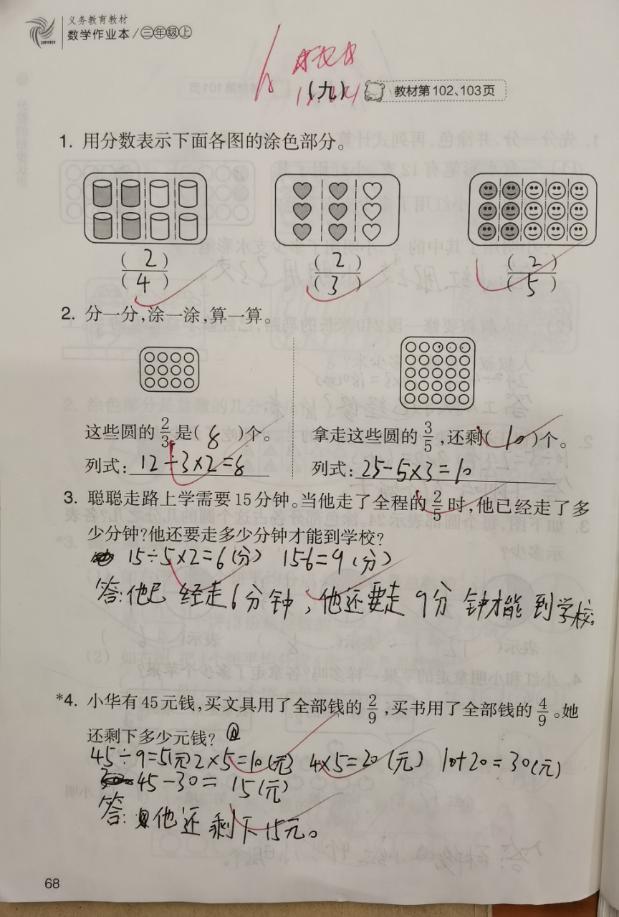 义务教育教材
数学作业本/三年级上
(九) 教材第102、103页
1. 用分数表示下面各图的涂色部分。
(2)/(4) (2)/(3) (2)/(5)
2. 分一分,涂一涂,算一算。
这些圆的2/3是(8)个。 拿走这些圆的3/5,还剩(10)个。
列式:12÷3×2=8 列式:25-5×3=10
3. 聪聪走路上学需要15分钟。当他走了全程的2/5时,他已经走了多
少分钟?他还要走多少分钟才能到学校?
15÷5×2=6(分) 15-6=9(分)
答:他已经走6分钟,他还要走9分钟才能到学校。
*4. 小华有45元钱,买文具用了全部钱的2/9,买书用了全部钱的4/9。她
还剩下多少元钱?
45÷9=5(元) 2×5=10(元) 4×5=20(元) 10+20=30(元)
45-30=15(元)
答:他还剩下15元。
68